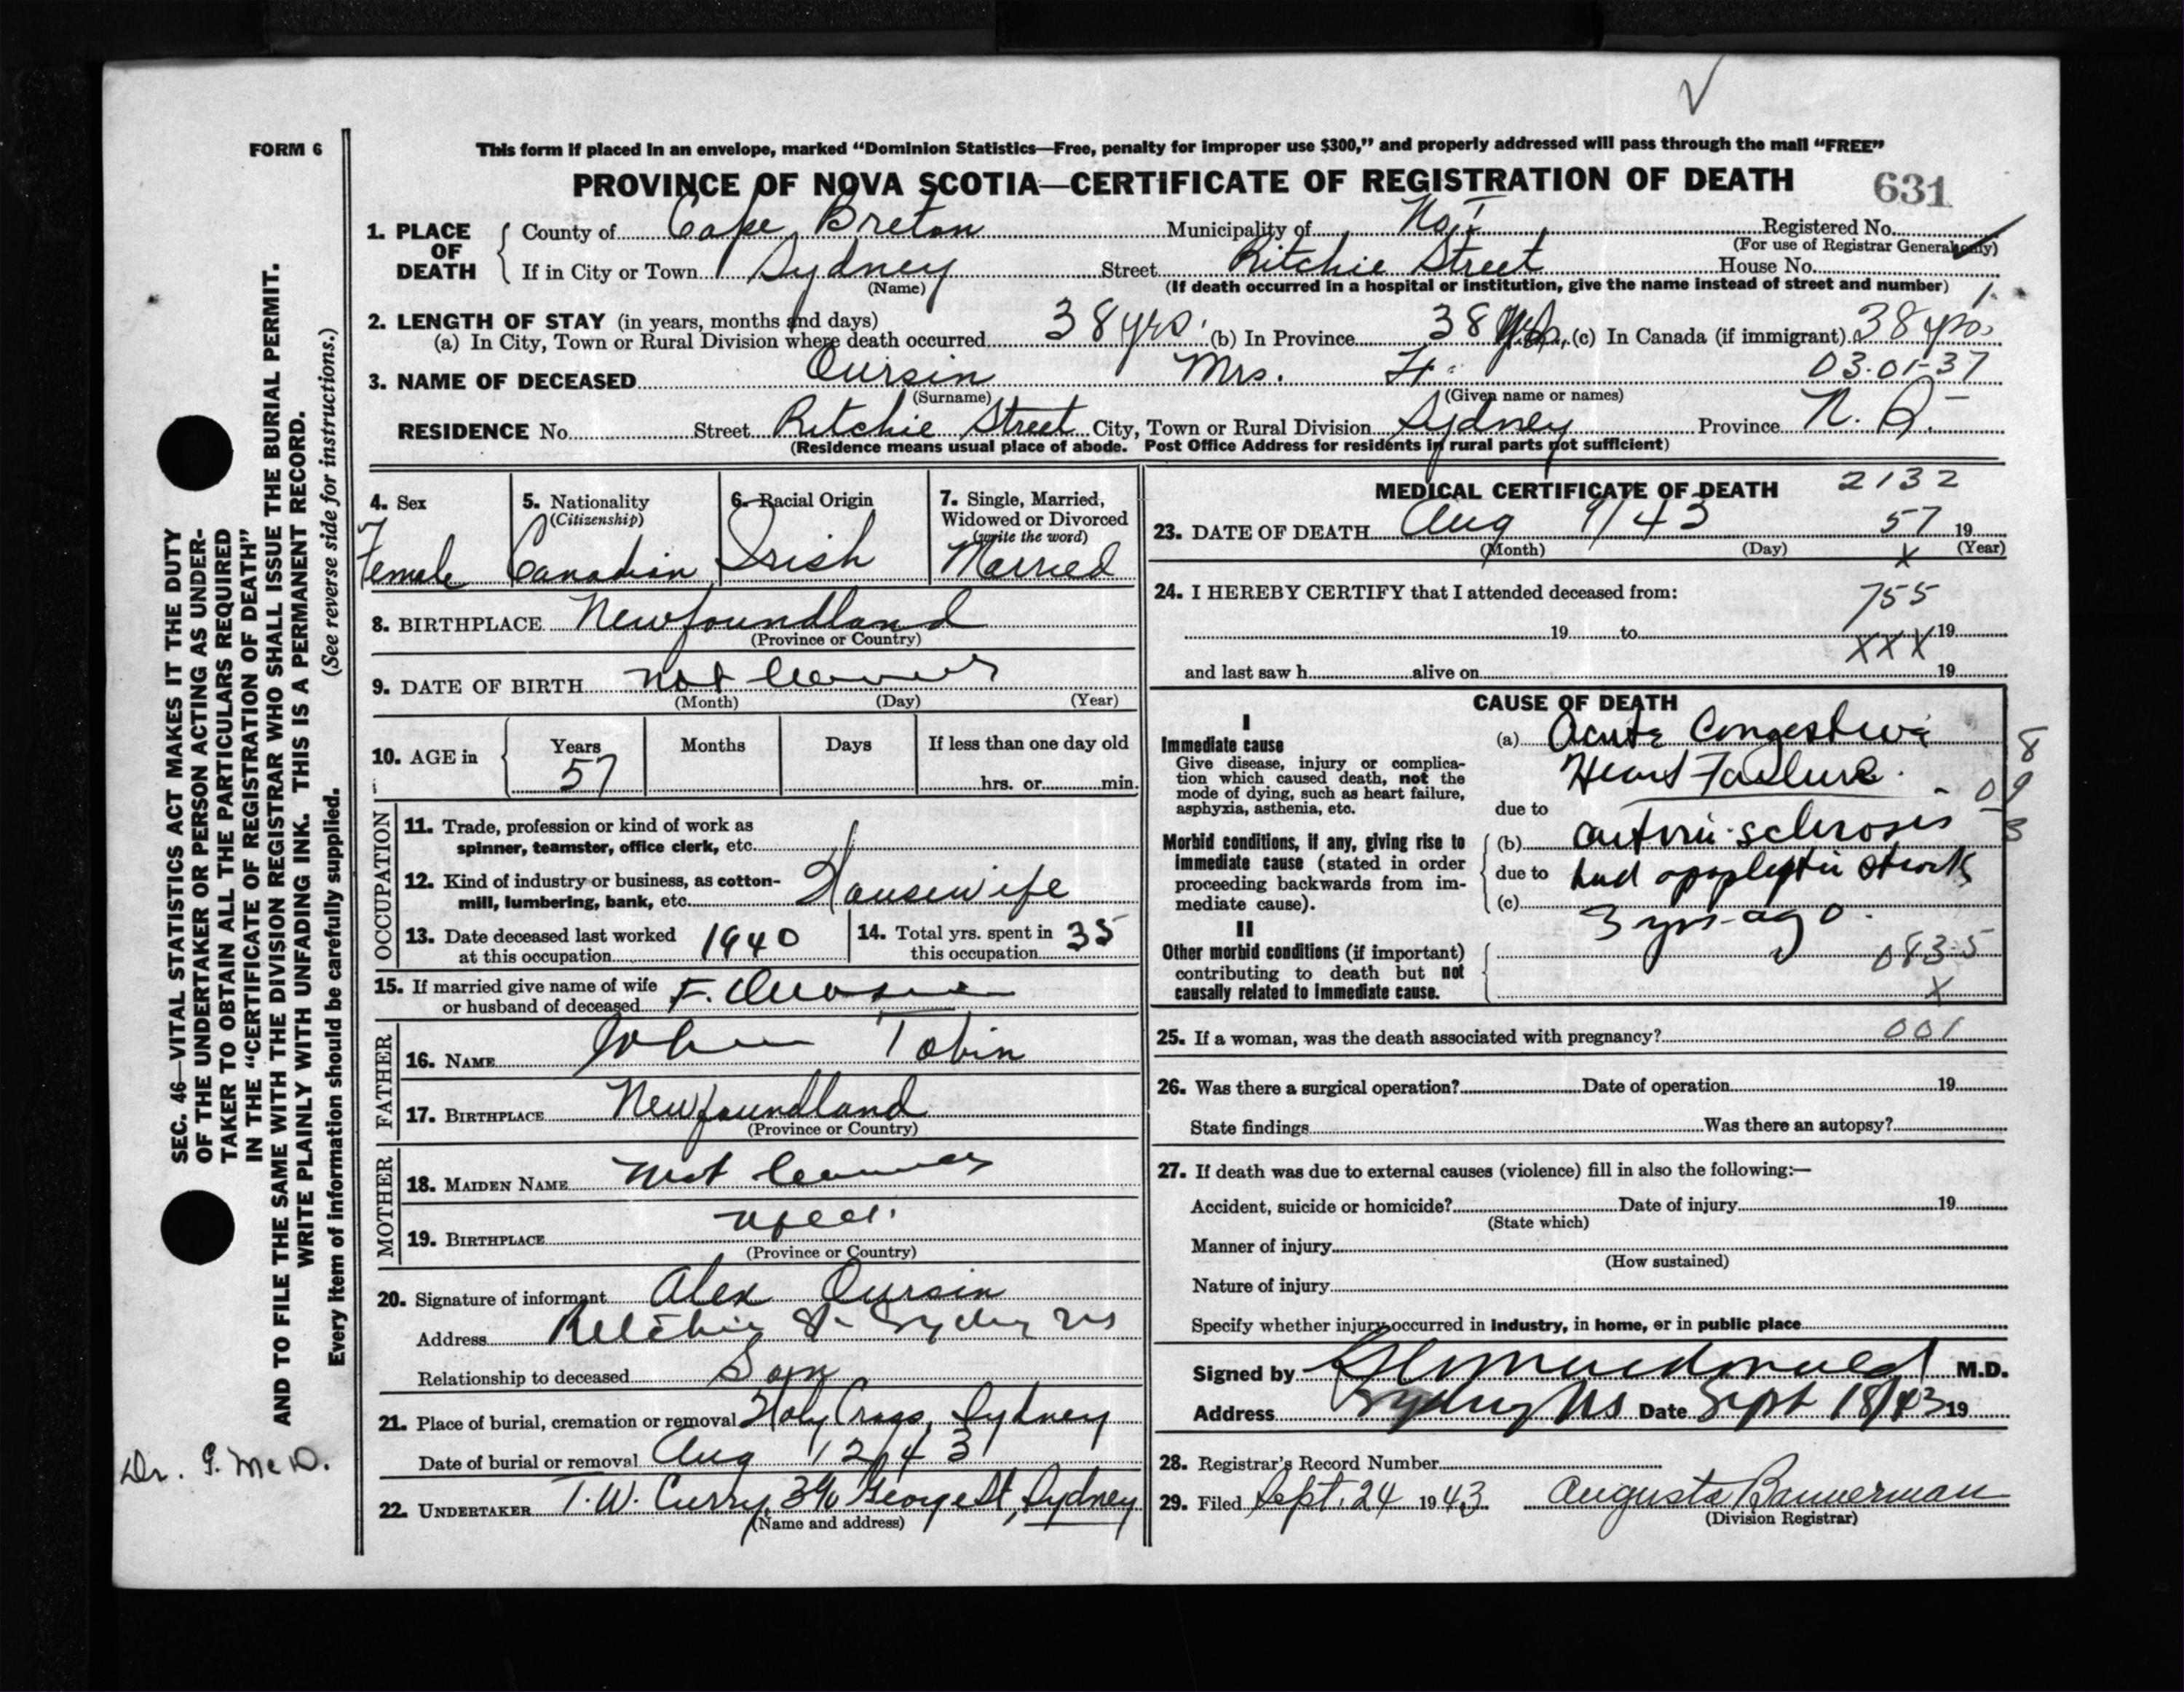 FORM 6
This form if placed in an envelope, marked "Dominion Statistics—Free, penalty for improper use $300," and properly addressed will pass through the mail "FREE"
PROVINCE OF NOVA SCOTIA—CERTIFICATE OF REGISTRATION OF DEATH 631
1. PLACE OF DEATH County of Cape Breton Municipality of No. 1 Registered No.
(For use of Registrar General only)
If in City or Town Sydney Street Ritchie Street House No.
(Name) (If death occurred in a hospital or institution, give the name instead of street and number) 1.
2. LENGTH OF STAY (in years, months and days)
(a) In City, Town or Rural Division where death occurred 38 yrs. (b) In Province 38 yrs. (c) In Canada (if immigrant) 38 yrs.
3. NAME OF DECEASED Oursin Mrs. F. 03-01-37
(Surname) (Given name or names)
RESIDENCE No. Street Ritchie Street City, Town or Rural Division Sydney Province N. S.
(Residence means usual place of abode. Post Office Address for residents in rural parts not sufficient)
4. Sex 5. Nationality (Citizenship) 6. Racial Origin 7. Single, Married, Widowed or Divorced (write the word)
Female Canadian Irish Married
8. BIRTHPLACE Newfoundland
(Province or Country)
9. DATE OF BIRTH not known
(Month) (Day) (Year)
10. AGE in Years Months Days If less than one day old
57 hrs. or min.
OCCUPATION
11. Trade, profession or kind of work as
spinner, teamster, office clerk, etc.
12. Kind of industry or business, as cotton-
mill, lumbering, bank, etc. Housewife
13. Date deceased last worked at this occupation 1940 14. Total yrs. spent in this occupation 35
15. If married give name of wife
or husband of deceased F. Oursin
FATHER
16. NAME John Tobin
17. BIRTHPLACE Newfoundland
(Province or Country)
MOTHER
18. MAIDEN NAME not known
19. BIRTHPLACE Nfld.
(Province or Country)
20. Signature of informant Alex Oursin
Address Ritchie St Sydney NS
Relationship to deceased Son
21. Place of burial, cremation or removal Holy Cross, Sydney
Date of burial or removal Aug 12/43
22. UNDERTAKER T. W. Curry, George St, Sydney
(Name and address)
MEDICAL CERTIFICATE OF DEATH 2132
23. DATE OF DEATH Aug 9/43 57 19
(Month) (Day) X (Year)
24. I HEREBY CERTIFY that I attended deceased from: 755
19 to XXX 19
and last saw h alive on 19
CAUSE OF DEATH
I
Immediate cause (a) Acute Congestive
Give disease, injury or complica-
tion which caused death, not the
mode of dying, such as heart failure,
asphyxia, asthenia, etc. due to
Heart Failure. 8
09
3
Morbid conditions, if any, giving rise to
immediate cause (stated in order
proceeding backwards from im-
mediate cause).
(b) arterio-sclerosis
due to had apoplectic stroke
(c) 3 yrs ago.
II
Other morbid conditions (if important)
contributing to death but not
causally related to immediate cause.
083-5
X
25. If a woman, was the death associated with pregnancy? 001
26. Was there a surgical operation? Date of operation 19
State findings Was there an autopsy?
27. If death was due to external causes (violence) fill in also the following:—
Accident, suicide or homicide? Date of injury 19
(State which)
Manner of injury
(How sustained)
Nature of injury
Specify whether injury occurred in industry, in home, or in public place
Signed by Macdonald M.D.
Address Sydney NS Date Sept 18/43 19
28. Registrar's Record Number
29. Filed Sept. 24 1943 Augusta Bannerman
(Division Registrar)
SEC. 46—VITAL STATISTICS ACT MAKES IT THE DUTY
OF THE UNDERTAKER OR PERSON ACTING AS UNDER-
TAKER TO OBTAIN ALL THE PARTICULARS REQUIRED
IN THE "CERTIFICATE OF REGISTRATION OF DEATH"
AND TO FILE THE SAME WITH THE DIVISION REGISTRAR WHO SHALL ISSUE THE BURIAL PERMIT.
WRITE PLAINLY WITH UNFADING INK. THIS IS A PERMANENT RECORD.
Every item of information should be carefully supplied. (See reverse side for instructions.)
Dr. G. McD.